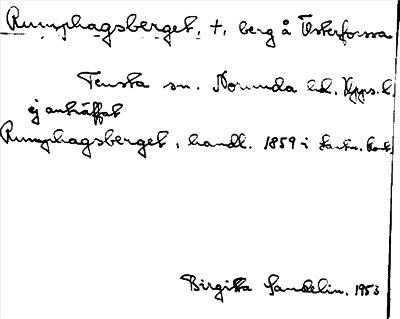 Rumphagsberget, †, berg å Österforssa
Tensta sn. Norunda hd. Upps. l.
ej anträffat
Rumphagsberget, handl. 1859 i Lantm. kont.
Birgitta Sandelin. 1953